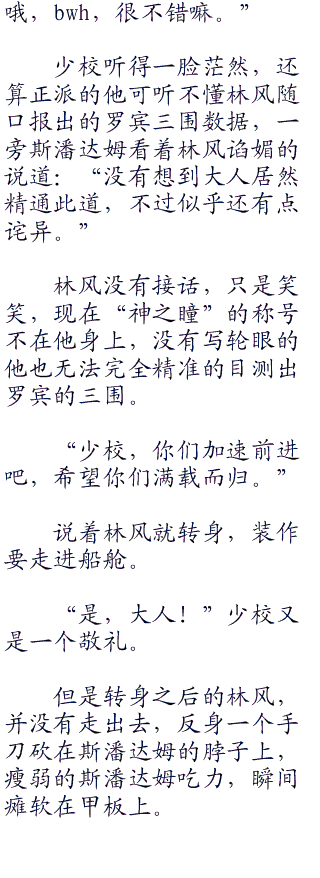 哦，bwh，很不错嘛。”
少校听得一脸茫然，还
算正派的他可听不懂林风随
口报出的罗宾三围数据，一
旁斯潘达姆看着林风谄媚的
说道：“没有想到大人居然
精通此道，不过似乎还有点
诧异。”
林风没有接话，只是笑
笑，现在“神之瞳”的称号
不在他身上，没有写轮眼的
他也无法完全精准的目测出
罗宾的三围。
“少校，你们加速前进
吧，希望你们满载而归。”
说着林风就转身，装作
要走进船舱。
“是，大人！”少校又
是一个敬礼。
但是转身之后的林风，
并没有走出去，反身一个手
刀砍在斯潘达姆的脖子上，
瘦弱的斯潘达姆吃力，瞬间
瘫软在甲板上。